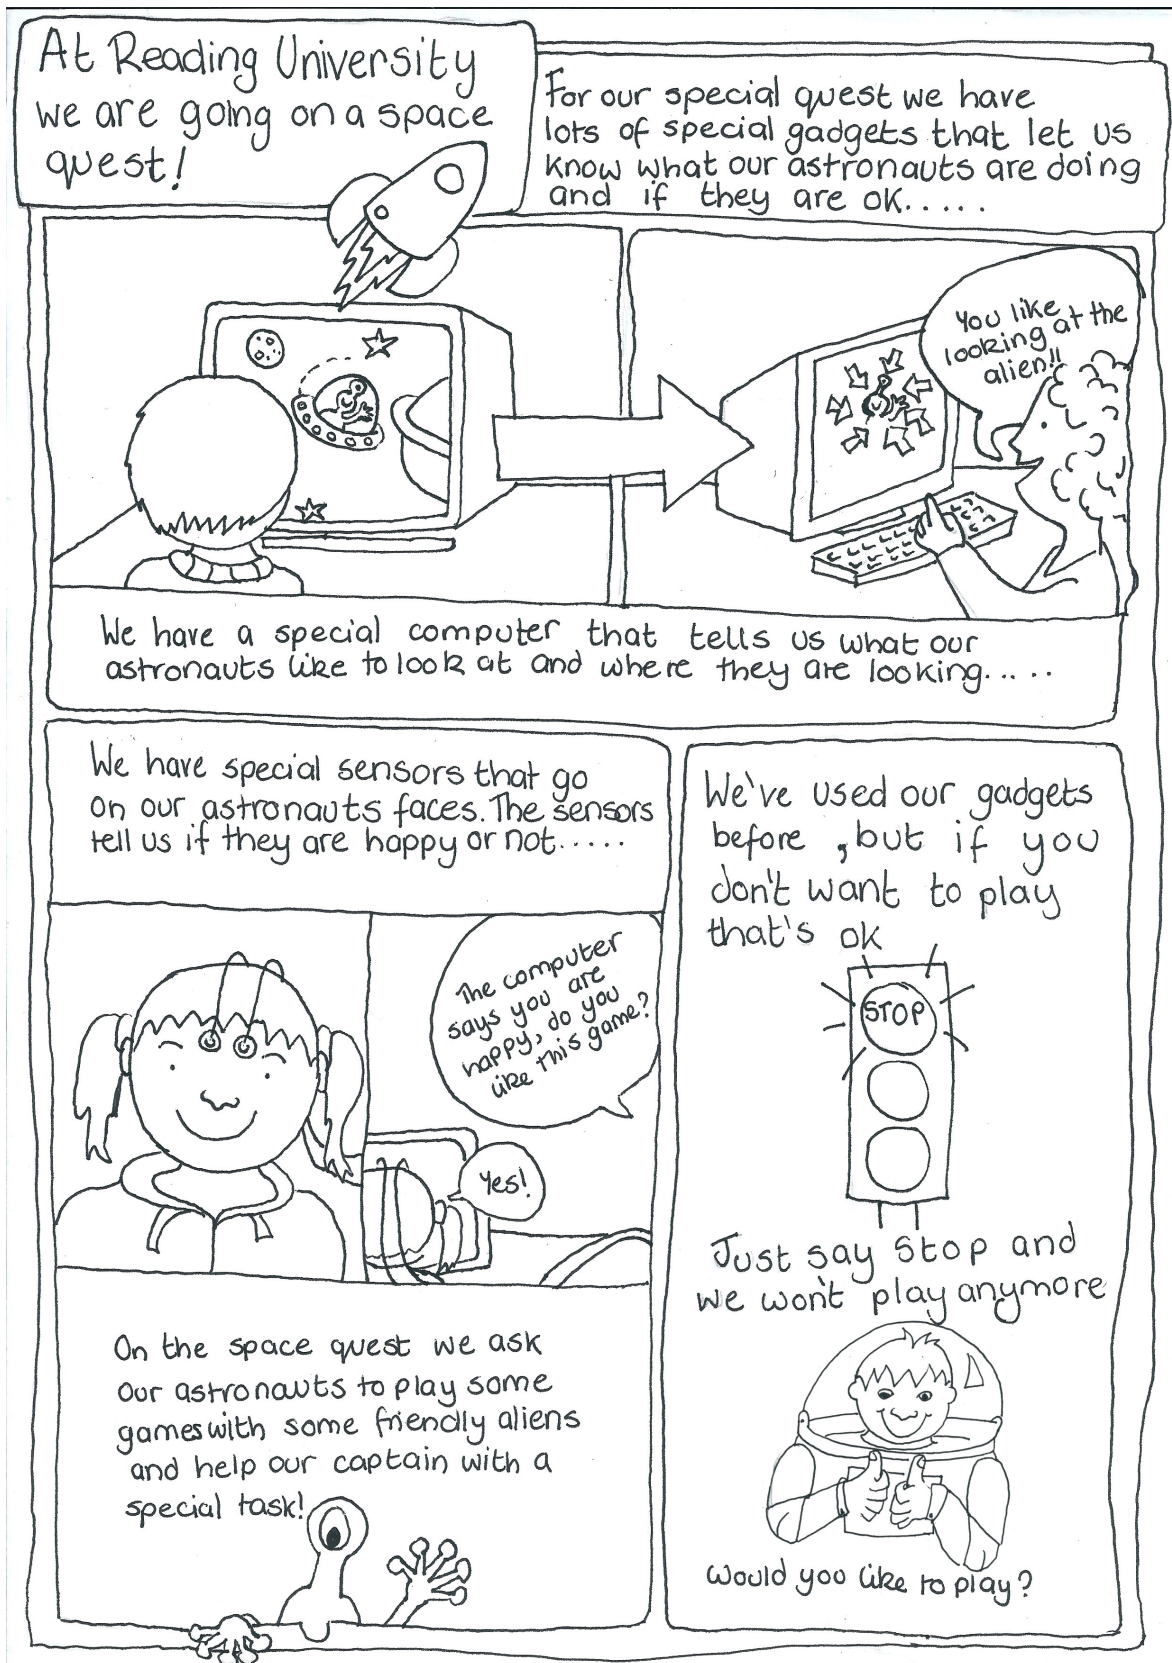 At Reading University
we are going on a space
quest!
For our special quest we have
lots of special gadgets that let us
know what our astronauts are doing
and if they are ok.....
You like
looking at the
alien!!
We have a special computer that tells us what our
astronauts like to look at and where they are looking.....
We have special sensors that go
on our astronauts faces. The sensors
tell us if they are happy or not.....
The computer
says you are
happy, do you
like this game?
Yes!
On the space quest we ask
our astronauts to play some
games with some friendly aliens
and help our captain with a
special task!
We've used our gadgets
before, but if you
don't want to play
that's ok
STOP
Just say stop and
we won't play anymore
would you like to play?